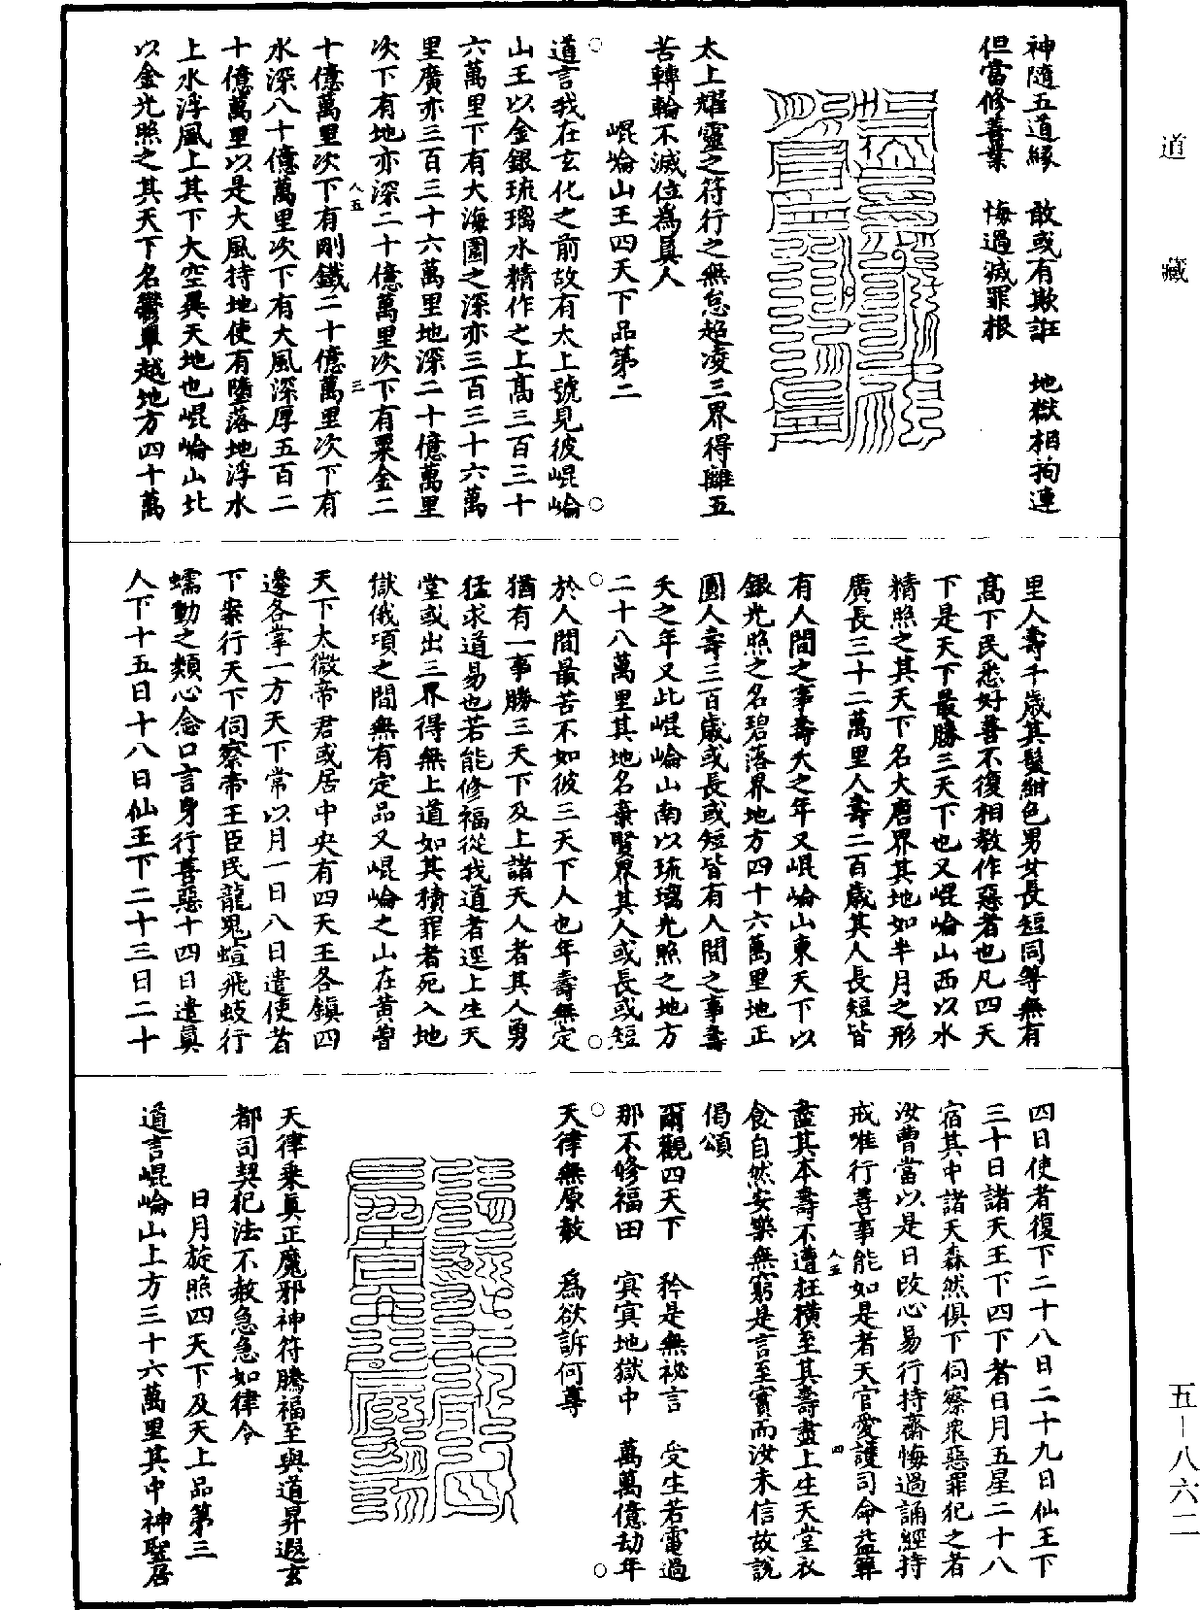 道藏
神隨五道緣　敢或有欺誑　地獄相拘連
但當修善業　悔過滅罪根
太上耀靈之符行之無怠超凌三界得離五
苦轉輪不滅位為真人
崐崘山王四天下品第二
道言我在玄化之前故有太上號見彼崐崘
山王以金銀琉璃水精作之上高三百三十
六萬里下有大海圍之深亦三百三十六萬
里廣亦三百三十六萬里地深二十億萬里
次下有地亦深二十億萬里次下有粟金二
人五　三
十億萬里次下有剛鐵二十億萬里次下有
水深八十億萬里次下有大風深厚五百二
十億萬里以是大風持地使有墮落地浮水
上水浮風上其下大空異天地也崐崘山北
以金光照之其天下名鬱單越地方四十萬
里人壽千歲其髮紺色男女長短同等無有
高下民悉好善不復相教作惡者也凡四天
下是天下最勝三天下也又崐崘山西以水
精照之其天下名大唐界其地如半月之形
廣長三十二萬里人壽二百歲其人長短皆
有人間之事壽夭之年又崐崘山東天下以
銀光照之名碧落界地方四十六萬里地正
圓人壽三百歲或長或短皆有人間之事壽
夭之年又此崐崘山南以琉璃光照之地方
二十八萬里其地名棄賢界其人或長或短
於人間最苦不如彼三天下人也年壽無定
猶有一事勝三天下及上諸天人者其人勇
猛求道易也若能修福從我道者逕上生天
堂或出三界得無上道如其積罪者死入地
獄俄頃之間無有定品又崐崘之山在黃曾
天下太微帝君或居中央有四天王各鎮四
邊各掌一方天下常以月一日八日遣使者
下案行天下伺察帝王臣民龍鬼蝖飛蚑行
蠕動之類心念口言身行善惡十四日遣真
人下十五日十八日仙王下二十三日二十
四日使者復下二十八日二十九日仙王下
三十日諸天王下四下者日月五星二十八
宿其中諸天森然俱下伺察眾惡罪犯之者
汝曹當以是日改心易行持齋悔過誦經持
戒唯行善事能如是者天官愛護司命益筭
人五　四
盡其本壽不遭枉橫至其壽盡上生天堂衣
食自然安樂無窮是言至實而汝未信故說
偈頌
爾觀四天下　矜是無祕言　受生若電過
那不修福田　寘寘地獄中　萬萬億劫年
天律無原赦　為欲訴何尊
天律乘真正魔邪神符騰福至與道昇遐玄
都司契犯法不赦急急如律令
日月旋照四天下及天上品第三
道言崐崘山上方三十六萬里其中神聖居
五－八六二